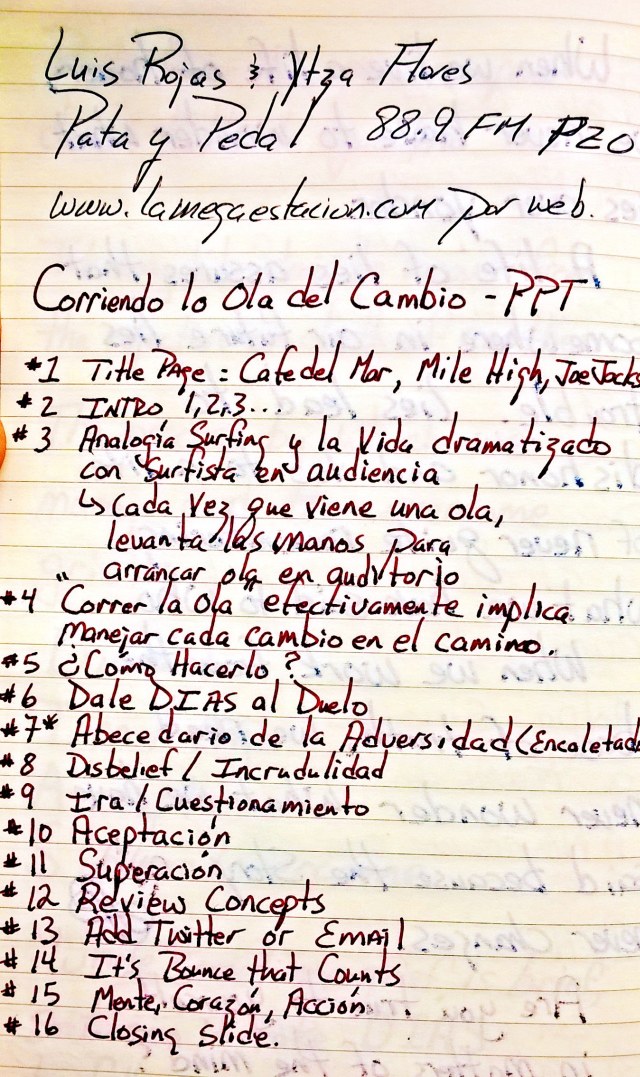 Luis Rojas & Ytza Flores
Pata y Pedal 88.9 FM PZO
www.lamegaestacion.com por web.
Corriendo la Ola del Cambio - PPT
#1 Title Page: Cafe del Mar, Mile High, Joe Jocks
#2 INTRO 1, 2, 3...
#3 Analogía Surfing y la Vida dramatizado
con Surfista en audiencia
↳ Cada vez que viene una ola,
levanta las manos para
arrancar ola en auditorio
#4 "Correr la Ola" efectivamente implica
manejar cada cambio en el camino.
#5 ¿Cómo Hacerlo?
#6 Dale DIAS al Duelo
#7* Abecedario de la Adversidad (Encaletad
#8 Disbelief / Incrudulidad
#9 Ira / Cuestionamiento
#10 Aceptación
#11 Superación
#12 Review Concepts
#13 Add Twitter or Email
#14 It's Bounce that Counts
#15 Mente, Corazón, Acción
#16 Closing slide.